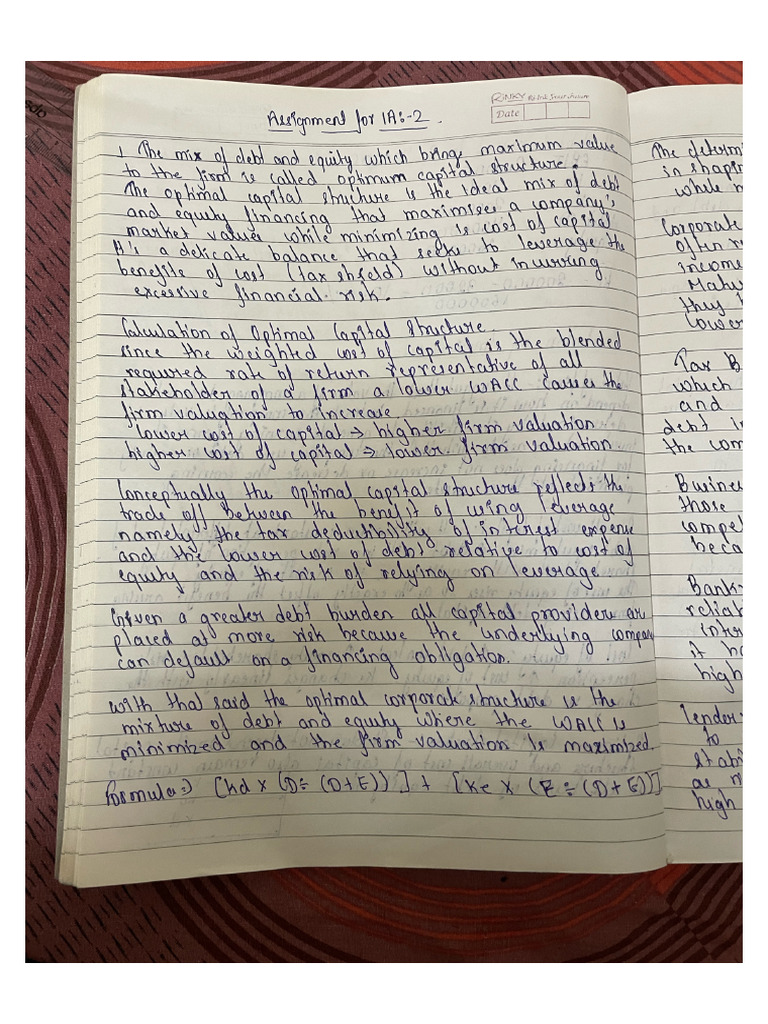 Assignment for IA:-2.
RINKY
Date
1 The mix of debt and equity which bring maximum value
to the firm is called optimum capital structure.
The optimal capital structure is the ideal mix of debt
and equity financing that maximises a company's
market values while minimizing is cost of capital
It's a delicate balance that seeks to leverage the
benefits of cost (tax shield) without incurring
excessive financial risk.
Calculation of Optimal Capital Structure.
since the weighted cost of capital is the blended
required rate of return representative of all
stakeholder of a firm a lower WACC causes the
firm valuation to increase
lower cost of capital → higher firm valuation
higher cost of capital → lower firm valuation
Conceptually the optimal capital structure reflects the
trade off between the benefit of using leverage
namely the tax deductibility of interest expense
and the lower cost of debt relative to cost of
equity and the risk of relying on leverage
Given a greater debt burden all capital provider are
placed at more risk because the underlying company
can default on a financing obligation.
With that said the optimal corporate structure is the
mixture of debt and equity where the WACC is
minimized and the firm valuation is maximized.
Formula⇒ [Kd × (D÷(D+E))] + [Ke × (E÷(D+E))]
The determi
in shapin
while m
Corporate
often re
income
Matur
they h
lower
Tax B
which
and
debt in
the com
Busines
those
compe
beca
Bank
reliab
inter
it ha
high
lender
to
stabi
as m
high